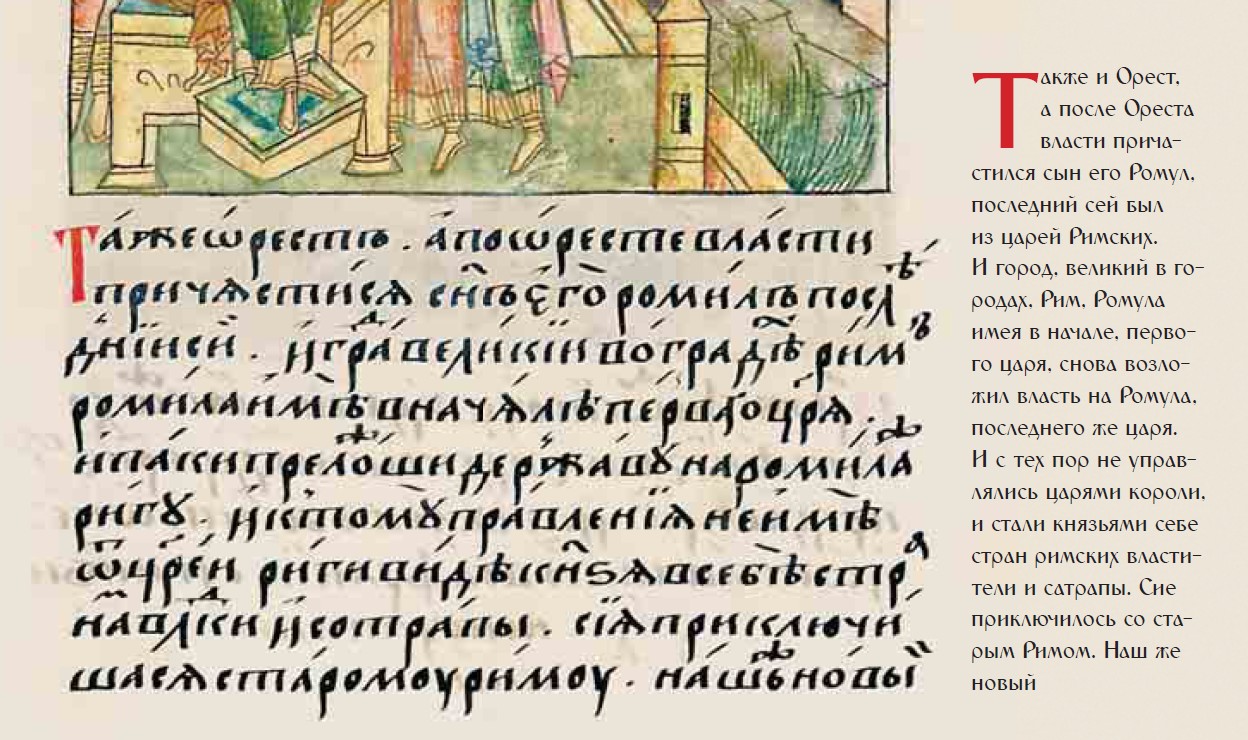 Такжеѡрестъ . апоѡресте власти
причѧстисѧ сн҃ъ єго ромилъ послѣ
днїисеи . и град великїи во градѣ римъ
ромила имѣ вначѧлѣ перваго црѧ .
и паки преложши державꙋ на ромила
ригꙋ . и ктомꙋ правленїѧ неимѣ
ѿ цреи риги видѣ кнѕѧ всебѣ стра
на влдки и сотрапы . сїѧ приключи
шасѧ старомоу римоу . нашъже новы
Также и Орест,
а после Ореста
власти прича-
стился сын его Ромул,
последний сей был
из царей Римских.
И город, великий в го-
родах, Рим, Ромула
имея в начале, перво-
го царя, снова возло-
жил власть на Ромула,
последнего же царя.
И с тех пор не управ-
лялись царями короли,
и стали князьями себе
стран римских власти-
тели и сатрапы. Сие
приключилось со ста-
рым Римом. Наш же
новый